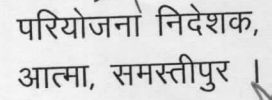 परियोजना निदेशक,
आत्मा, समस्तीपुर ।